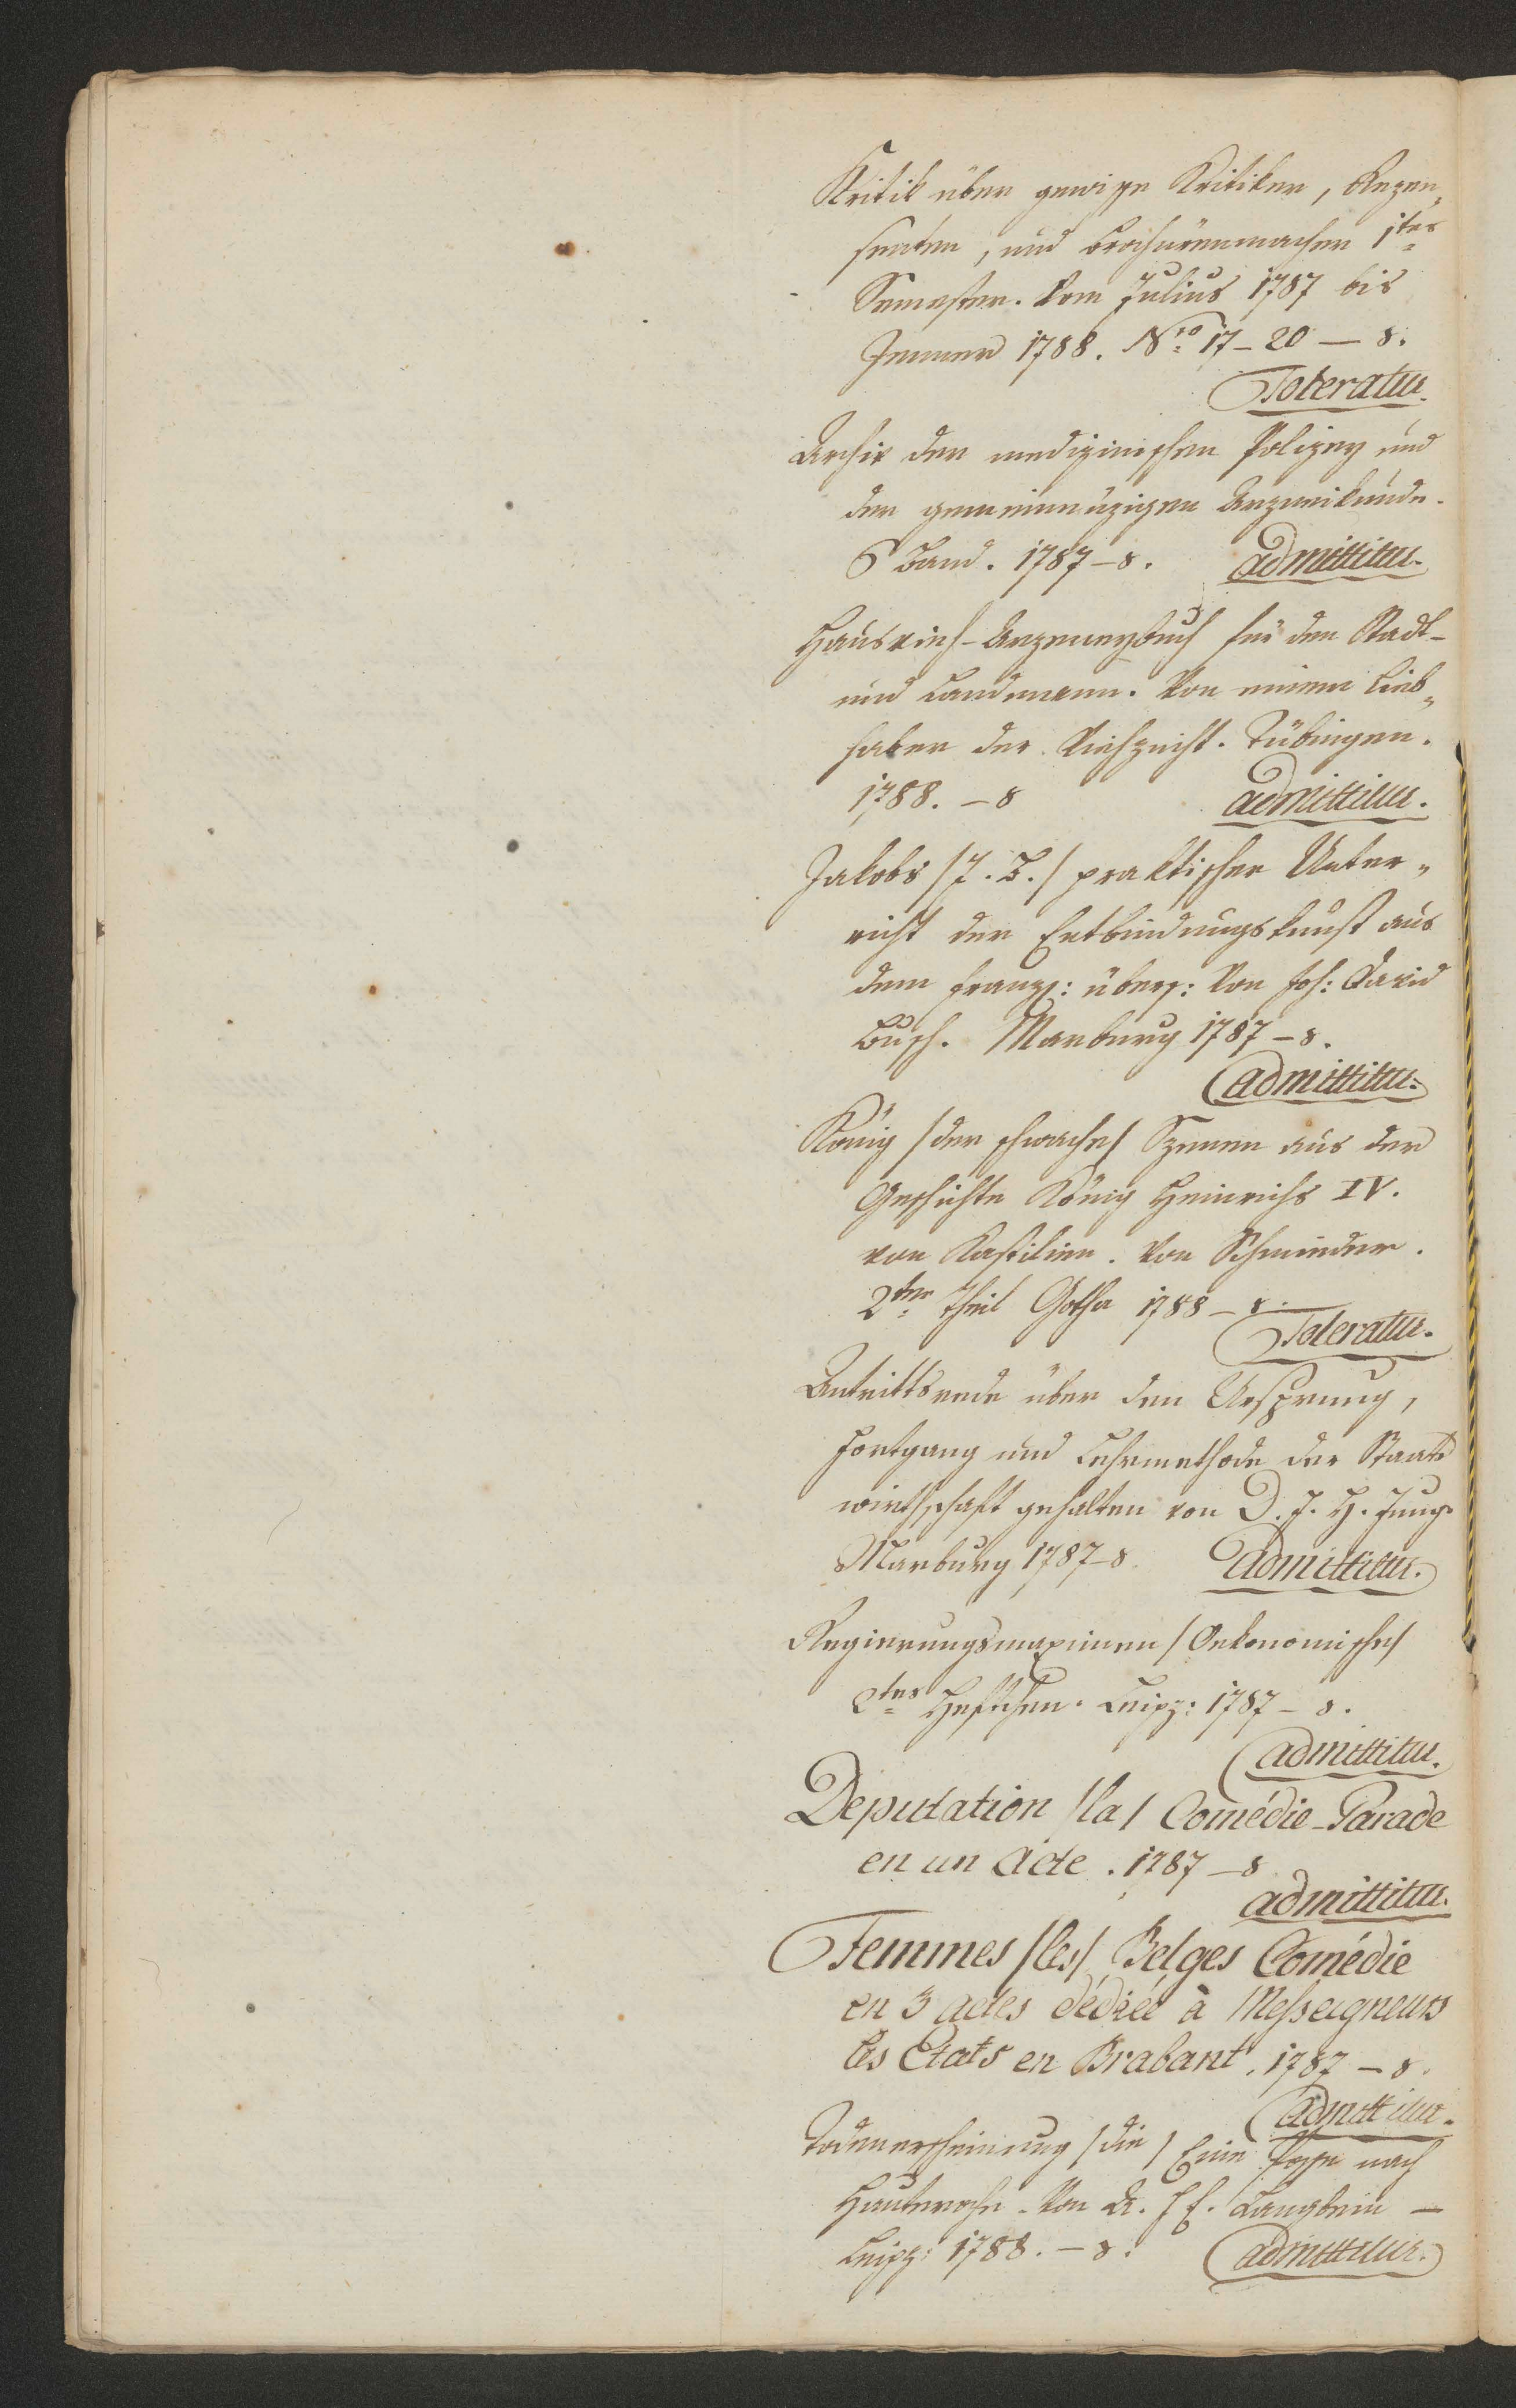 Kritik über gewisse Kritiker, Rezen„
senten, und Brochürenmacher 1tes
Semester. Vom Julius 1787 bis
Jenner 1788. Nro 17–20 — 8.
Toleratur.
Archiv der medizinischen Polizey und
der gemeinnüzigen Arzneikunde.
6 Band. 1787–8. admittitur.
Hausvieh-Arzeneybuch für den Stadt-
und Landmann. Von einem Lieb„
haber der Viehzucht. Tübingen.
1788. – 8 admittitur.
Jakobs /J. B./ praktischer Unter„
richt der Entbindungskunst aus
dem franz: übers: Von Joh: David
Busch. Marburg 1787 – 8.
admittitur.
König /der schwache/ Szenen aus der
Geschichte König Heinrichs IV.
von Kastilien. Von
2ter Theil Gotha 1788 – 8.
Toleratur.
Antrittsrede über den Ursprung,
Fortgang und Lehrmethode der Staats
wirthschaft gehalten von D. J. H. Jung.
Marburg 1787–8. Admittitur.
Regierungsmaximen /Oekonomische/
2tes Heftchen. Leipz: 1787 – 8.
admittitur.
Deputation /la/ Comédie-Parade
en un Acte. 1787 – 8
admittitur.
Femmes /les/ Belges Comédie
en 3 actes dédiée à Messeigneurs
les Etats en Brabant. 1787 – 8.
Admittitur.
Todenerscheinung /die/ Eine Posse nach
Hauteroche. Von A. F. E. Langbein —
Leipz: 1788. – 8. admittitur.